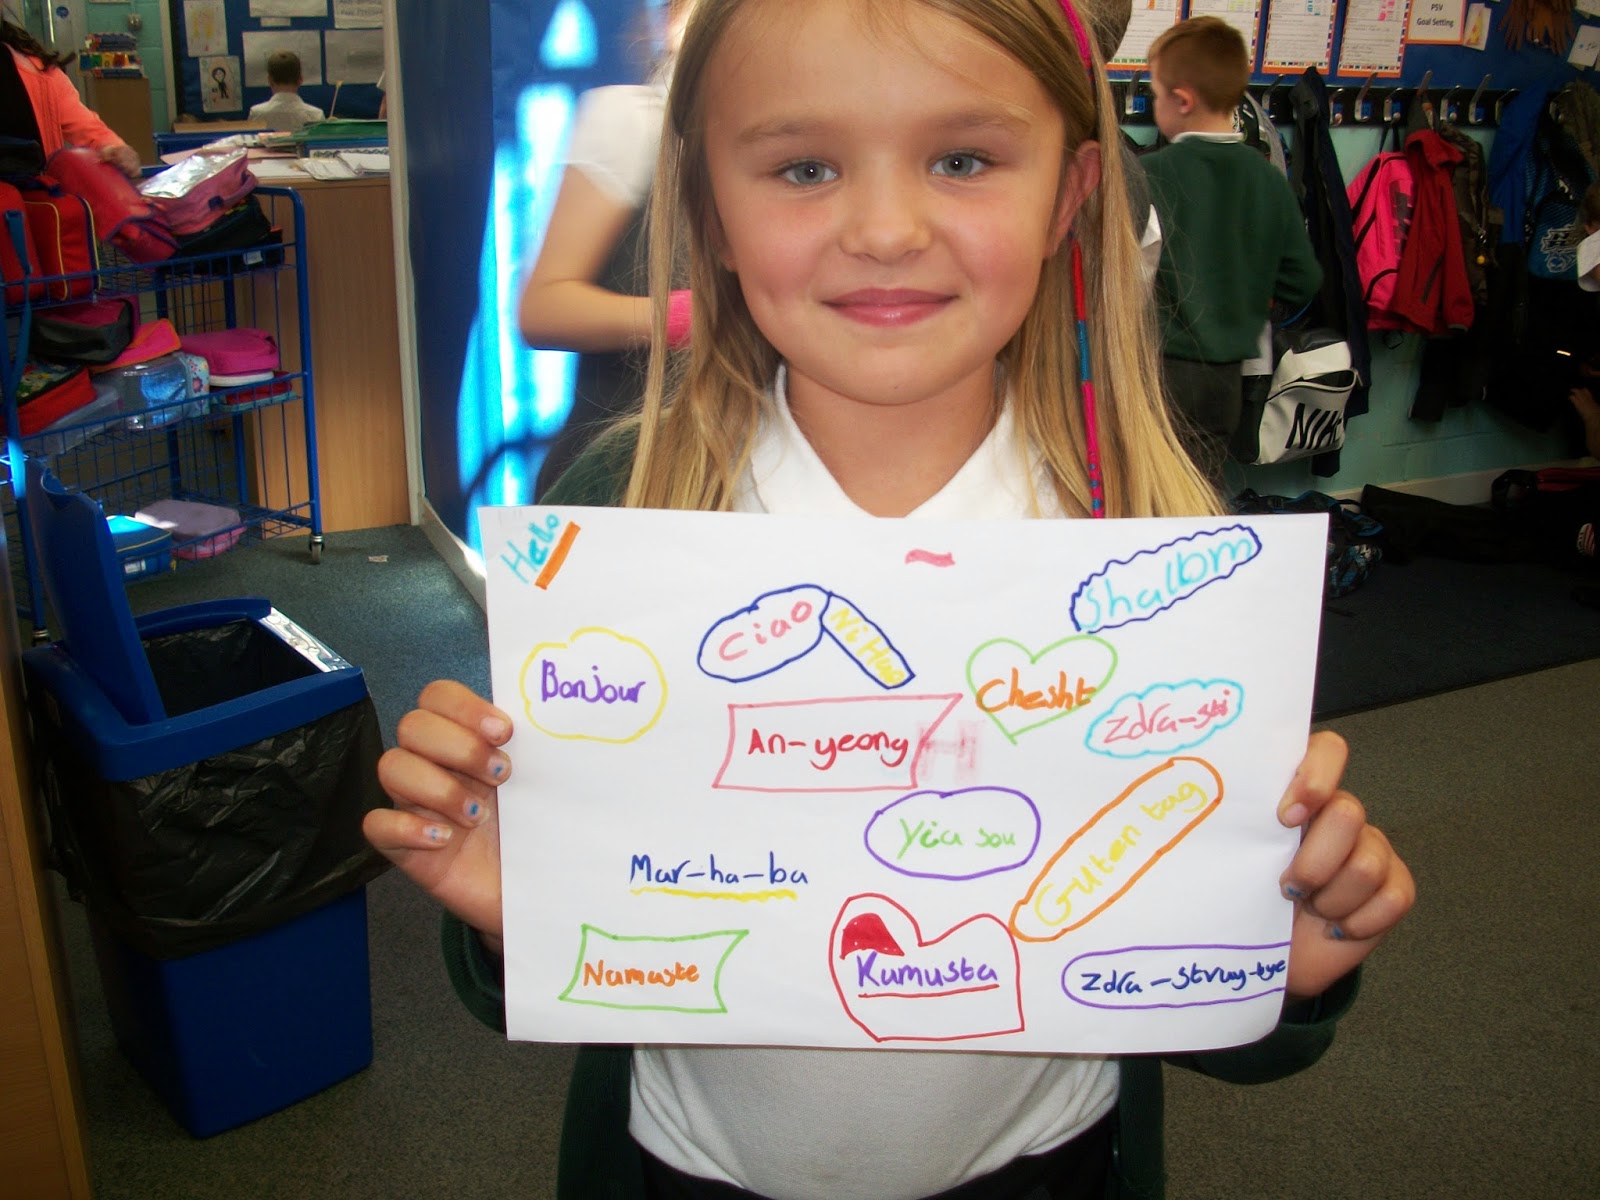 PSV
Goal Setting
NIKE
Hello
Shalom
Ciao
Ni Hao
Bonjour
Chesht
Zdra-sti
An-yeong
H
Yia sou
Guten tag
Mar-ha-ba
Namaste
Kumusta
Zdra-stvuy-tye